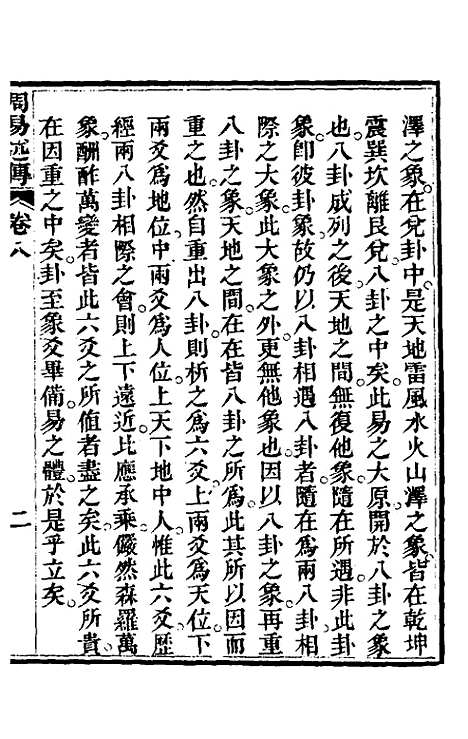 澤之象在兌卦中是天地雷風水火山澤之象皆在乾坤
震巽坎離艮兌八卦之中矣此易之大原開於八卦之象
也八卦成列之後天地之間無復他象隨在所遇非此卦
象卽彼卦象故仍以八卦相遇八卦者隨在爲兩八卦相
際之大象此大象之外更無他象也因以八卦之象再重
八卦之象天地之間在在皆八卦之所爲此其所以因而
重之也然自重出八卦則析之爲六爻上兩爻爲天位下
兩爻爲地位中兩爻爲人位上天下地中人惟此六爻歷
經兩八卦相際之會則上下遠近比應承乘儼然森羅萬
象酬酢萬變者皆此六爻之所值者盡之矣此六爻所貴
在因重之中矣卦至象爻畢備易之體於是乎立矣
周易述傳 卷八 二